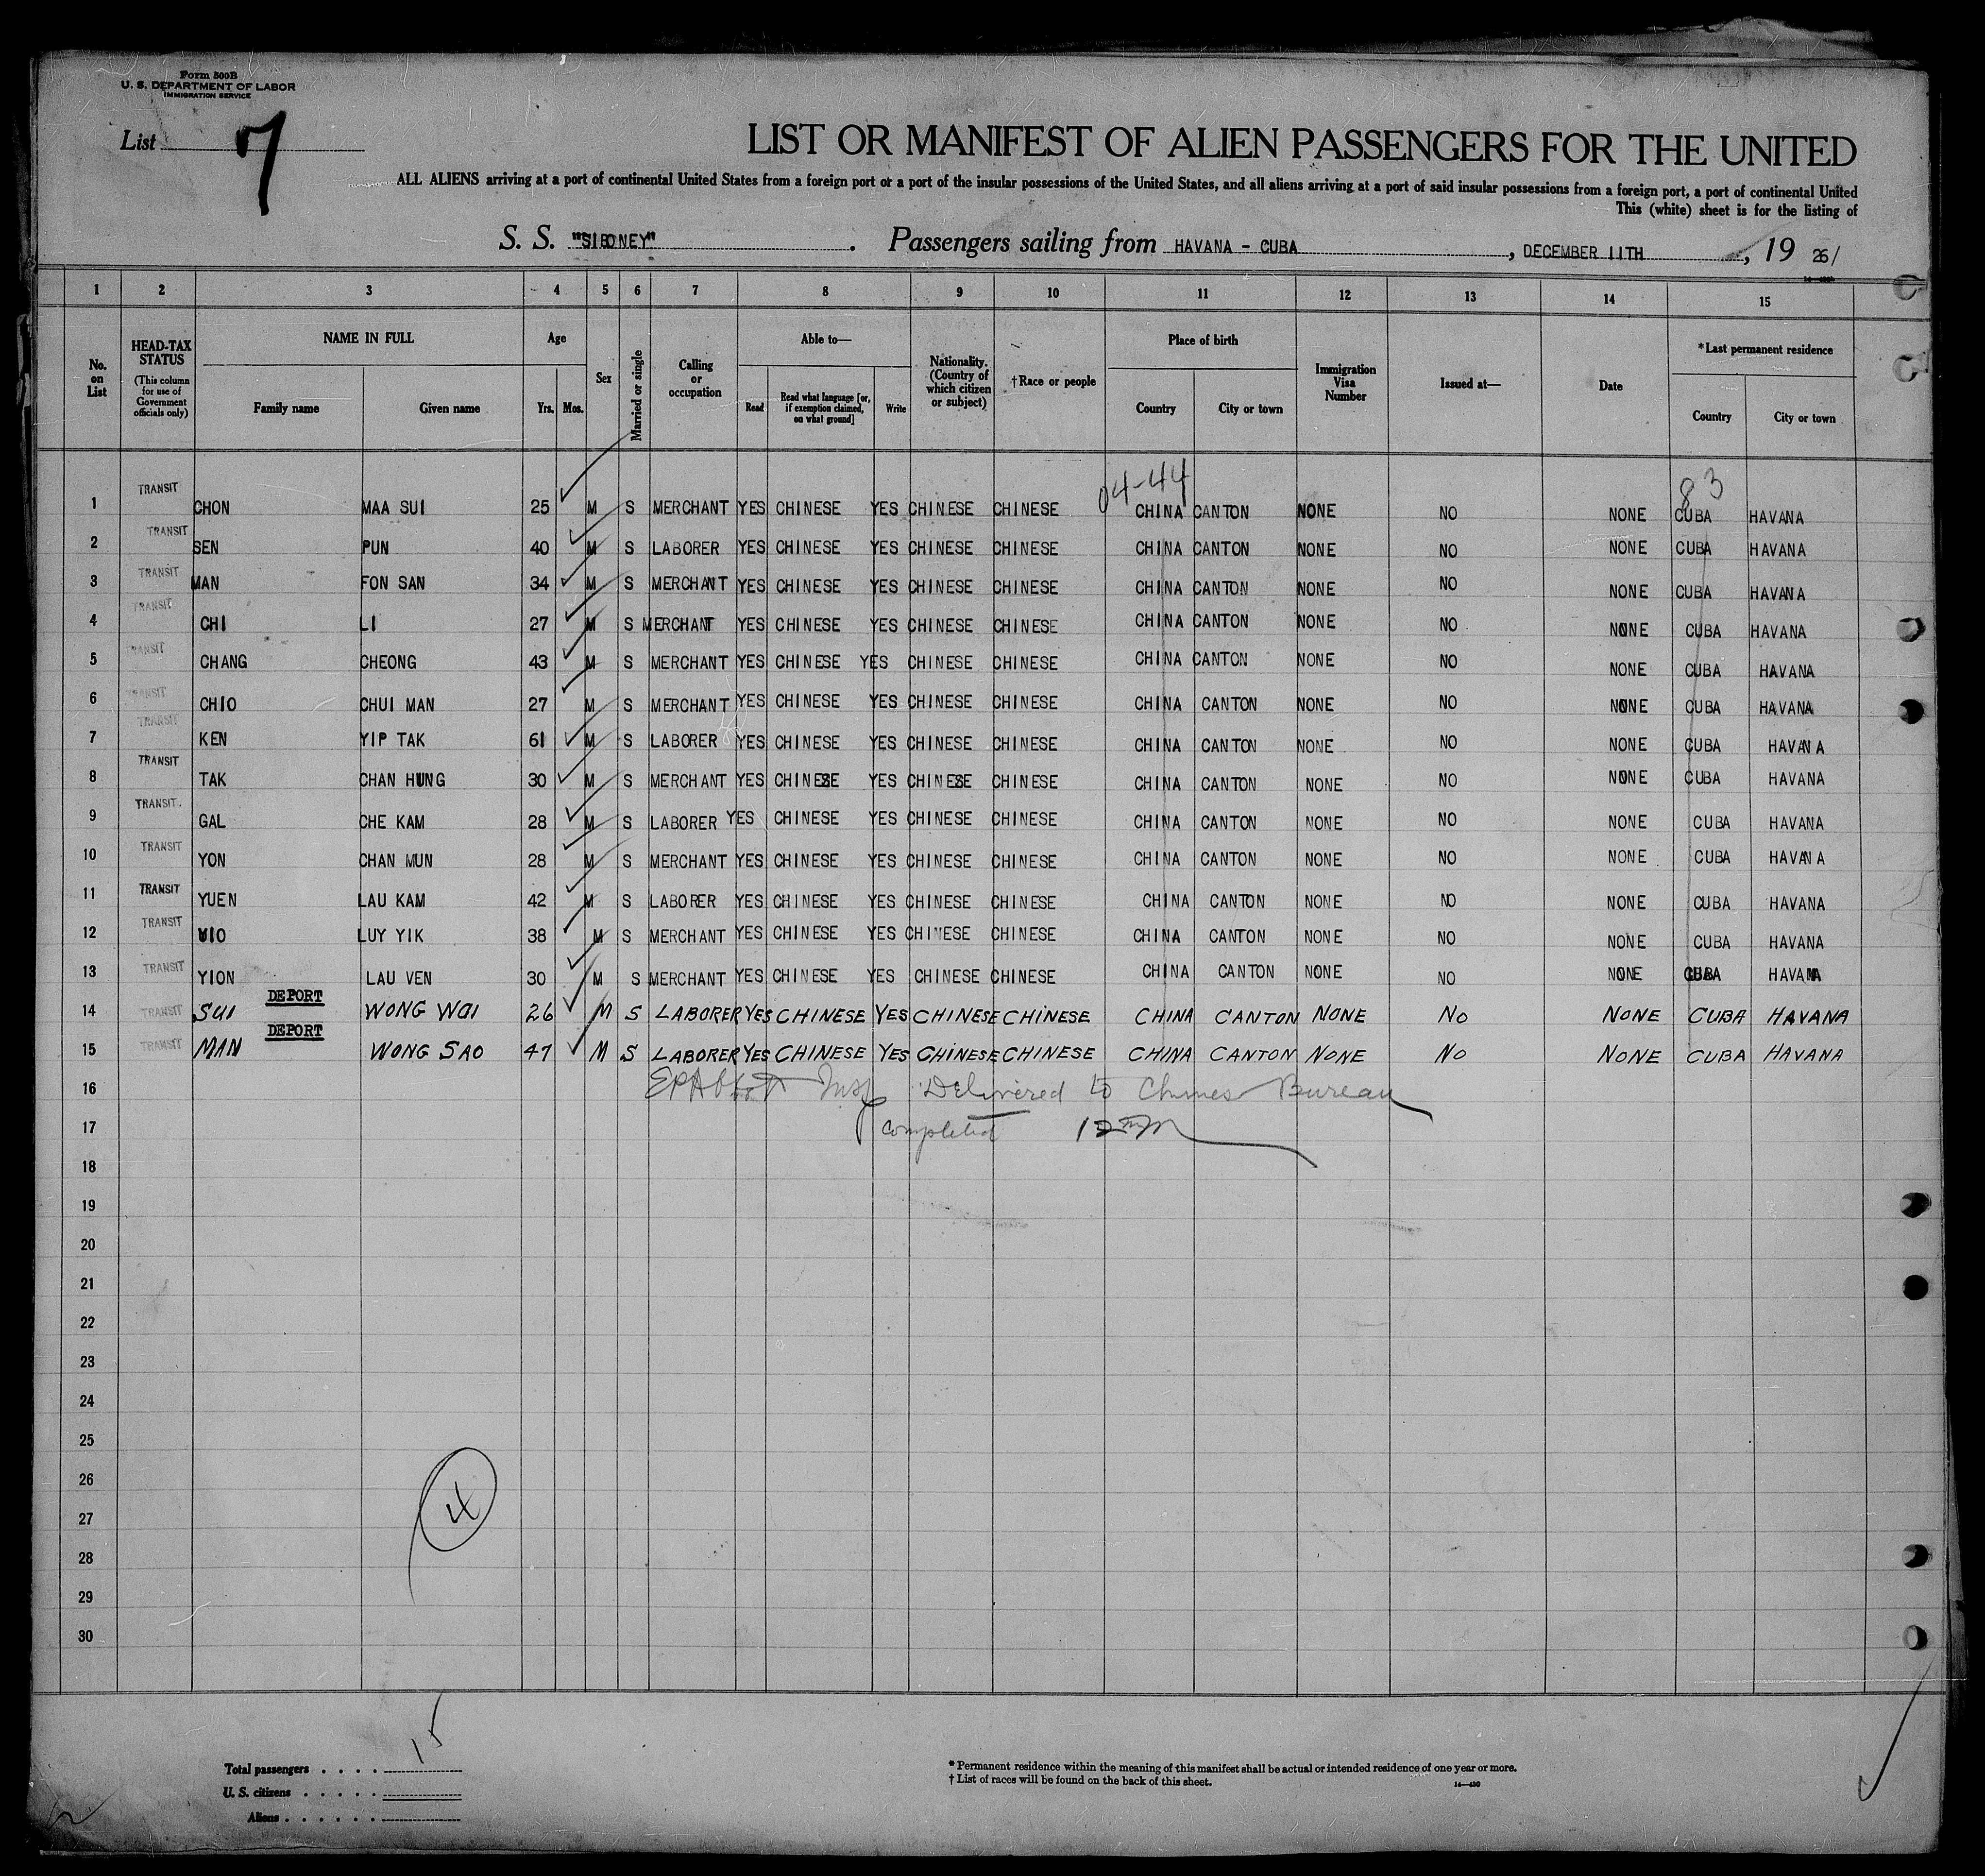 Form 500B
U. S. DEPARTMENT OF LABOR
IMMIGRATION SERVICE
List 7
LIST OR MANIFEST OF ALIEN PASSENGERS FOR THE UNITED
ALL ALIENS arriving at a port of continental United States from a foreign port or a port of the insular possessions of the United States, and all aliens arriving at a port of said insular possessions from a foreign port, a port of continental United
This (white) sheet is for the listing of
S. S. "SIBONEY" . Passengers sailing from HAVANA - CUBA , DECEMBER 11TH , 19 26/
1 2 3 4 5 6 7 8 9 10 11 12 13 14 15
No. on List HEAD-TAX STATUS (This column for use of Government officials only) NAME IN FULL Family name Given name Age Yrs. Mos. Sex Married or single Calling or occupation Able to— Read Read what language [or, if exemption claimed, on what ground] Write Nationality. (Country of which citizen or subject) †Race or people Place of birth Country City or town Immigration Visa Number Issued at— Date *Last permanent residence Country City or town
04-44 83
1 TRANSIT CHON MAA SUI 25 M S MERCHANT YES CHINESE YES CHINESE CHINESE CHINA CANTON NONE NO NONE CUBA HAVANA
2 TRANSIT SEN PUN 40 M S LABORER YES CHINESE YES CHINESE CHINESE CHINA CANTON NONE NO NONE CUBA HAVANA
3 TRANSIT MAN FON SAN 34 M S MERCHANT YES CHINESE YES CHINESE CHINESE CHINA CANTON NONE NO NONE CUBA HAVANA
4 TRANSIT CHI LI 27 M S MERCHANT YES CHINESE YES CHINESE CHINESE CHINA CANTON NONE NO NONE CUBA HAVANA
5 TRANSIT CHANG CHEONG 43 M S MERCHANT YES CHINESE YES CHINESE CHINESE CHINA CANTON NONE NO NONE CUBA HAVANA
6 TRANSIT CHIO CHUI MAN 27 M S MERCHANT YES CHINESE YES CHINESE CHINESE CHINA CANTON NONE NO NONE CUBA HAVANA
7 TRANSIT KEN YIP TAK 61 M S LABORER YES CHINESE YES CHINESE CHINESE CHINA CANTON NONE NO NONE CUBA HAVANA
8 TRANSIT TAK CHAN HUNG 30 M S MERCHANT YES CHINESE YES CHINESE CHINESE CHINA CANTON NONE NO NONE CUBA HAVANA
9 TRANSIT. GAL CHE KAM 28 M S LABORER YES CHINESE YES CHINESE CHINESE CHINA CANTON NONE NO NONE CUBA HAVANA
10 TRANSIT YON CHAN MUN 28 M S MERCHANT YES CHINESE YES CHINESE CHINESE CHINA CANTON NONE NO NONE CUBA HAVANA
11 TRANSIT YUEN LAU KAM 42 M S LABORER YES CHINESE YES CHINESE CHINESE CHINA CANTON NONE NO NONE CUBA HAVANA
12 TRANSIT LUY YIK 38 M S MERCHANT YES CHINESE YES CHINESE CHINESE CHINA CANTON NONE NO NONE CUBA HAVANA
13 TRANSIT YION LAU VEN 30 M S MERCHANT YES CHINESE YES CHINESE CHINESE CHINA CANTON NONE NO NONE CUBA HAVANA
DEPORT
14 TRANSIT SUI WONG WAI 26 M S LABORER YES CHINESE YES CHINESE CHINESE CHINA CANTON NONE NO NONE CUBA HAVANA
DEPORT
15 TRANSIT MAN WONG SAO 47 M S LABORER YES CHINESE YES CHINESE CHINESE CHINA CANTON NONE NO NONE CUBA HAVANA
16 EPAbbott Insp Delivered to Chinese Bureau
17 Completed
18
19
20
21
22
23
24
25
26
27 4
28
29
30
Total passengers 15
U. S. citizens
Aliens
* Permanent residence within the meaning of this manifest shall be actual or intended residence of one year or more.
† List of races will be found on the back of this sheet.
14—430